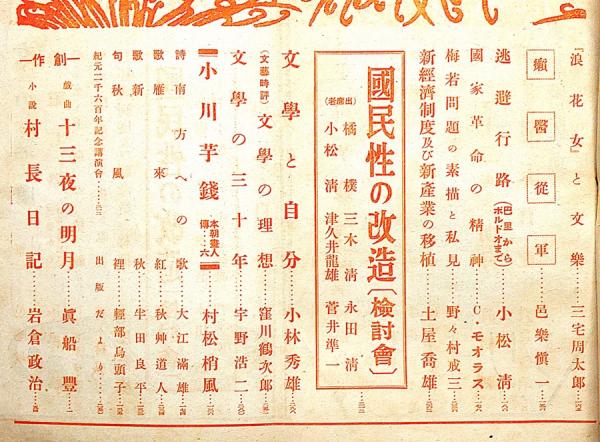 『浪花女』と文樂 三宅周太郎
癩醫從軍 邑樂愼一
逃避行路(巴里からボルドオまで) 小松清
國家革命の精神 C・モオラス
梅若問題の素描と私見 野々村戒三
新經濟制度及び新產業の移植 土屋喬雄
國民性の改造〔檢討會〕
(出席者)
橘樸 三木清 永田清
小松清 津久井龍雄 菅井準一
文學と自分 小林秀雄
(文藝時評)文學の理想 窪川鶴次郎
文學の三十年 宇野浩二
小川芋錢 本朝畫人傳 村松梢風
詩 南方への歌 大江滿雄
歌 雁來紅 秋艸道人
歌 新秋 半田良平
句 秋風裡 輕部烏頭子
紀元二千六百年記念講演會
出版だより
創作
戲曲 十三夜の明月 眞船豐
小說 村長日記 岩倉政治